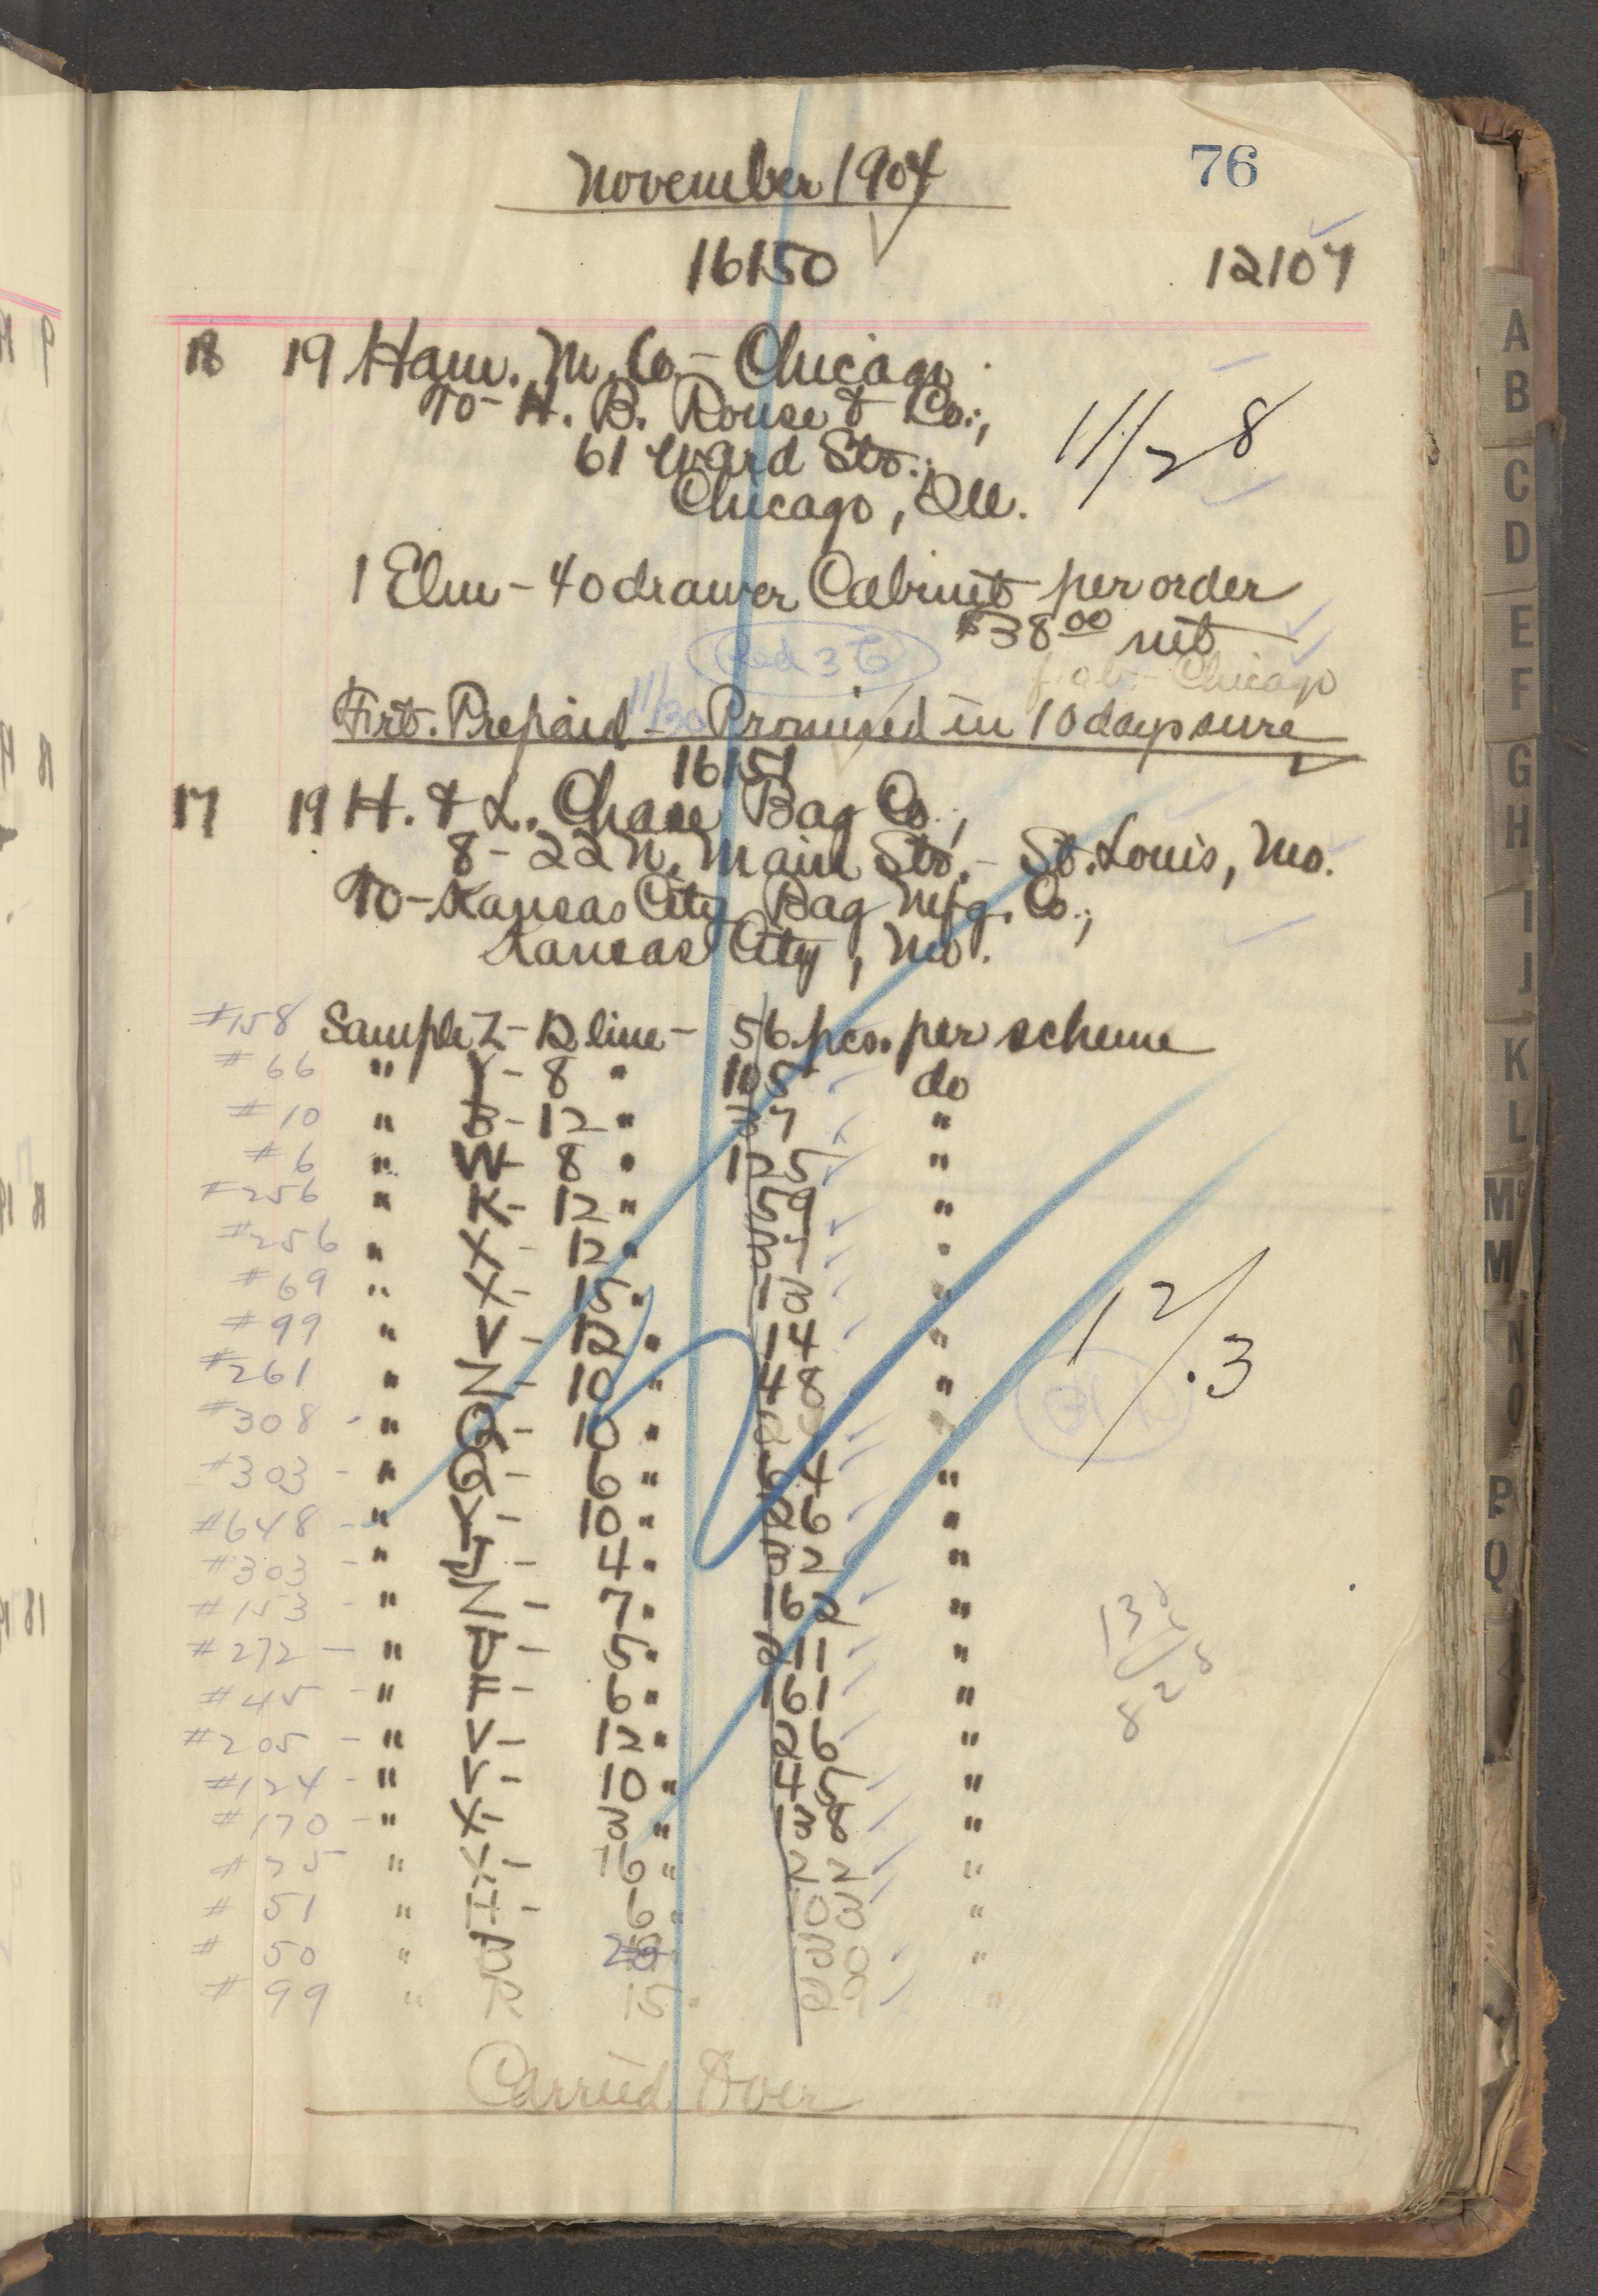 76
November 1904
16150 12107
18 19 Ham. M. Co. - Chicago
To - H. B. Rouse & Co.,
61 Ward Str.,
Chicago, Ill.
11/28
1 Elm - 40 drawer Cabinet per order
$38.00 net
f.o.b. - Chicago
Frt. Prepaid - Promised in 10 days sure
11/30
16151
17 19 H. & L. Chase Bag Co.,
8 - 22 N. Main Str. - St. Louis, Mo.
To - Kansas City Bag Mfg. Co.,
Kansas City, Mo.
#158 Sample Z - 12 line - 56 pcs. per scheme
#66 " Y - 8 " 105 do
#10 " B - 12 " 37 "
#6 " W - 8 " 125 "
#256 " K - 12 " 59 "
#256 " X - 12 " "
#69 " X - 15 " 13 "
#99 " V - 12 " 14 "
#261 " Z - 10 " 48 "
#308 - " Q - 10 " "
#303 - " Q - 6 " 64 "
#648 - " Y - 10 " 26 "
#303 - " J - 4 " 32 "
#153 - " Z - 7 " 162 "
#272 - " U - 5 " 211 "
#45 - " F - 6 " 161 "
#205 - " V - 12 " 26 "
#124 - " V - 10 " 45 "
#170 - " X - 3 " 138 "
#75 " Y - 16 " 22 "
#51 " I - 6 " 103 "
#50 " 20 30 "
#99 " R 15 " 29 "
12/3
Carried Over
A
B
C
D
E
F
G
H
I
J
K
L
M
M
N
O
P
Q